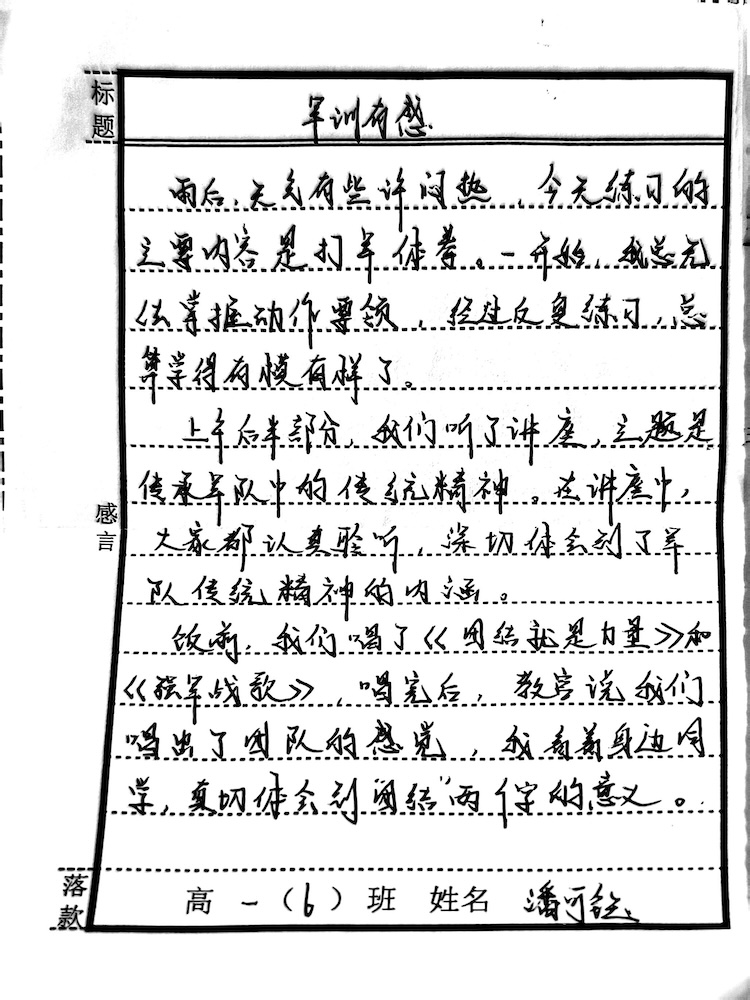 标题
军训有感
雨后,天气有些许闷热,今天练习的
主要内容是打军体拳。一开始,我总无
法掌握动作要领,经过反复练习,总
算学得有模有样了。
上午后半部分,我们听了讲座,主题是
传承军队中的传统精神。在讲座中,
感言
大家都认真聆听,深切体会到了军
队传统精神的内涵。
饭前,我们唱了《团结就是力量》和
《强军战歌》,唱完后,教官说我们
唱出了团队的感觉,我看着身边同
学,真切体会到团结"两个字的意义。
落款
高一(6)班 姓名 潘可